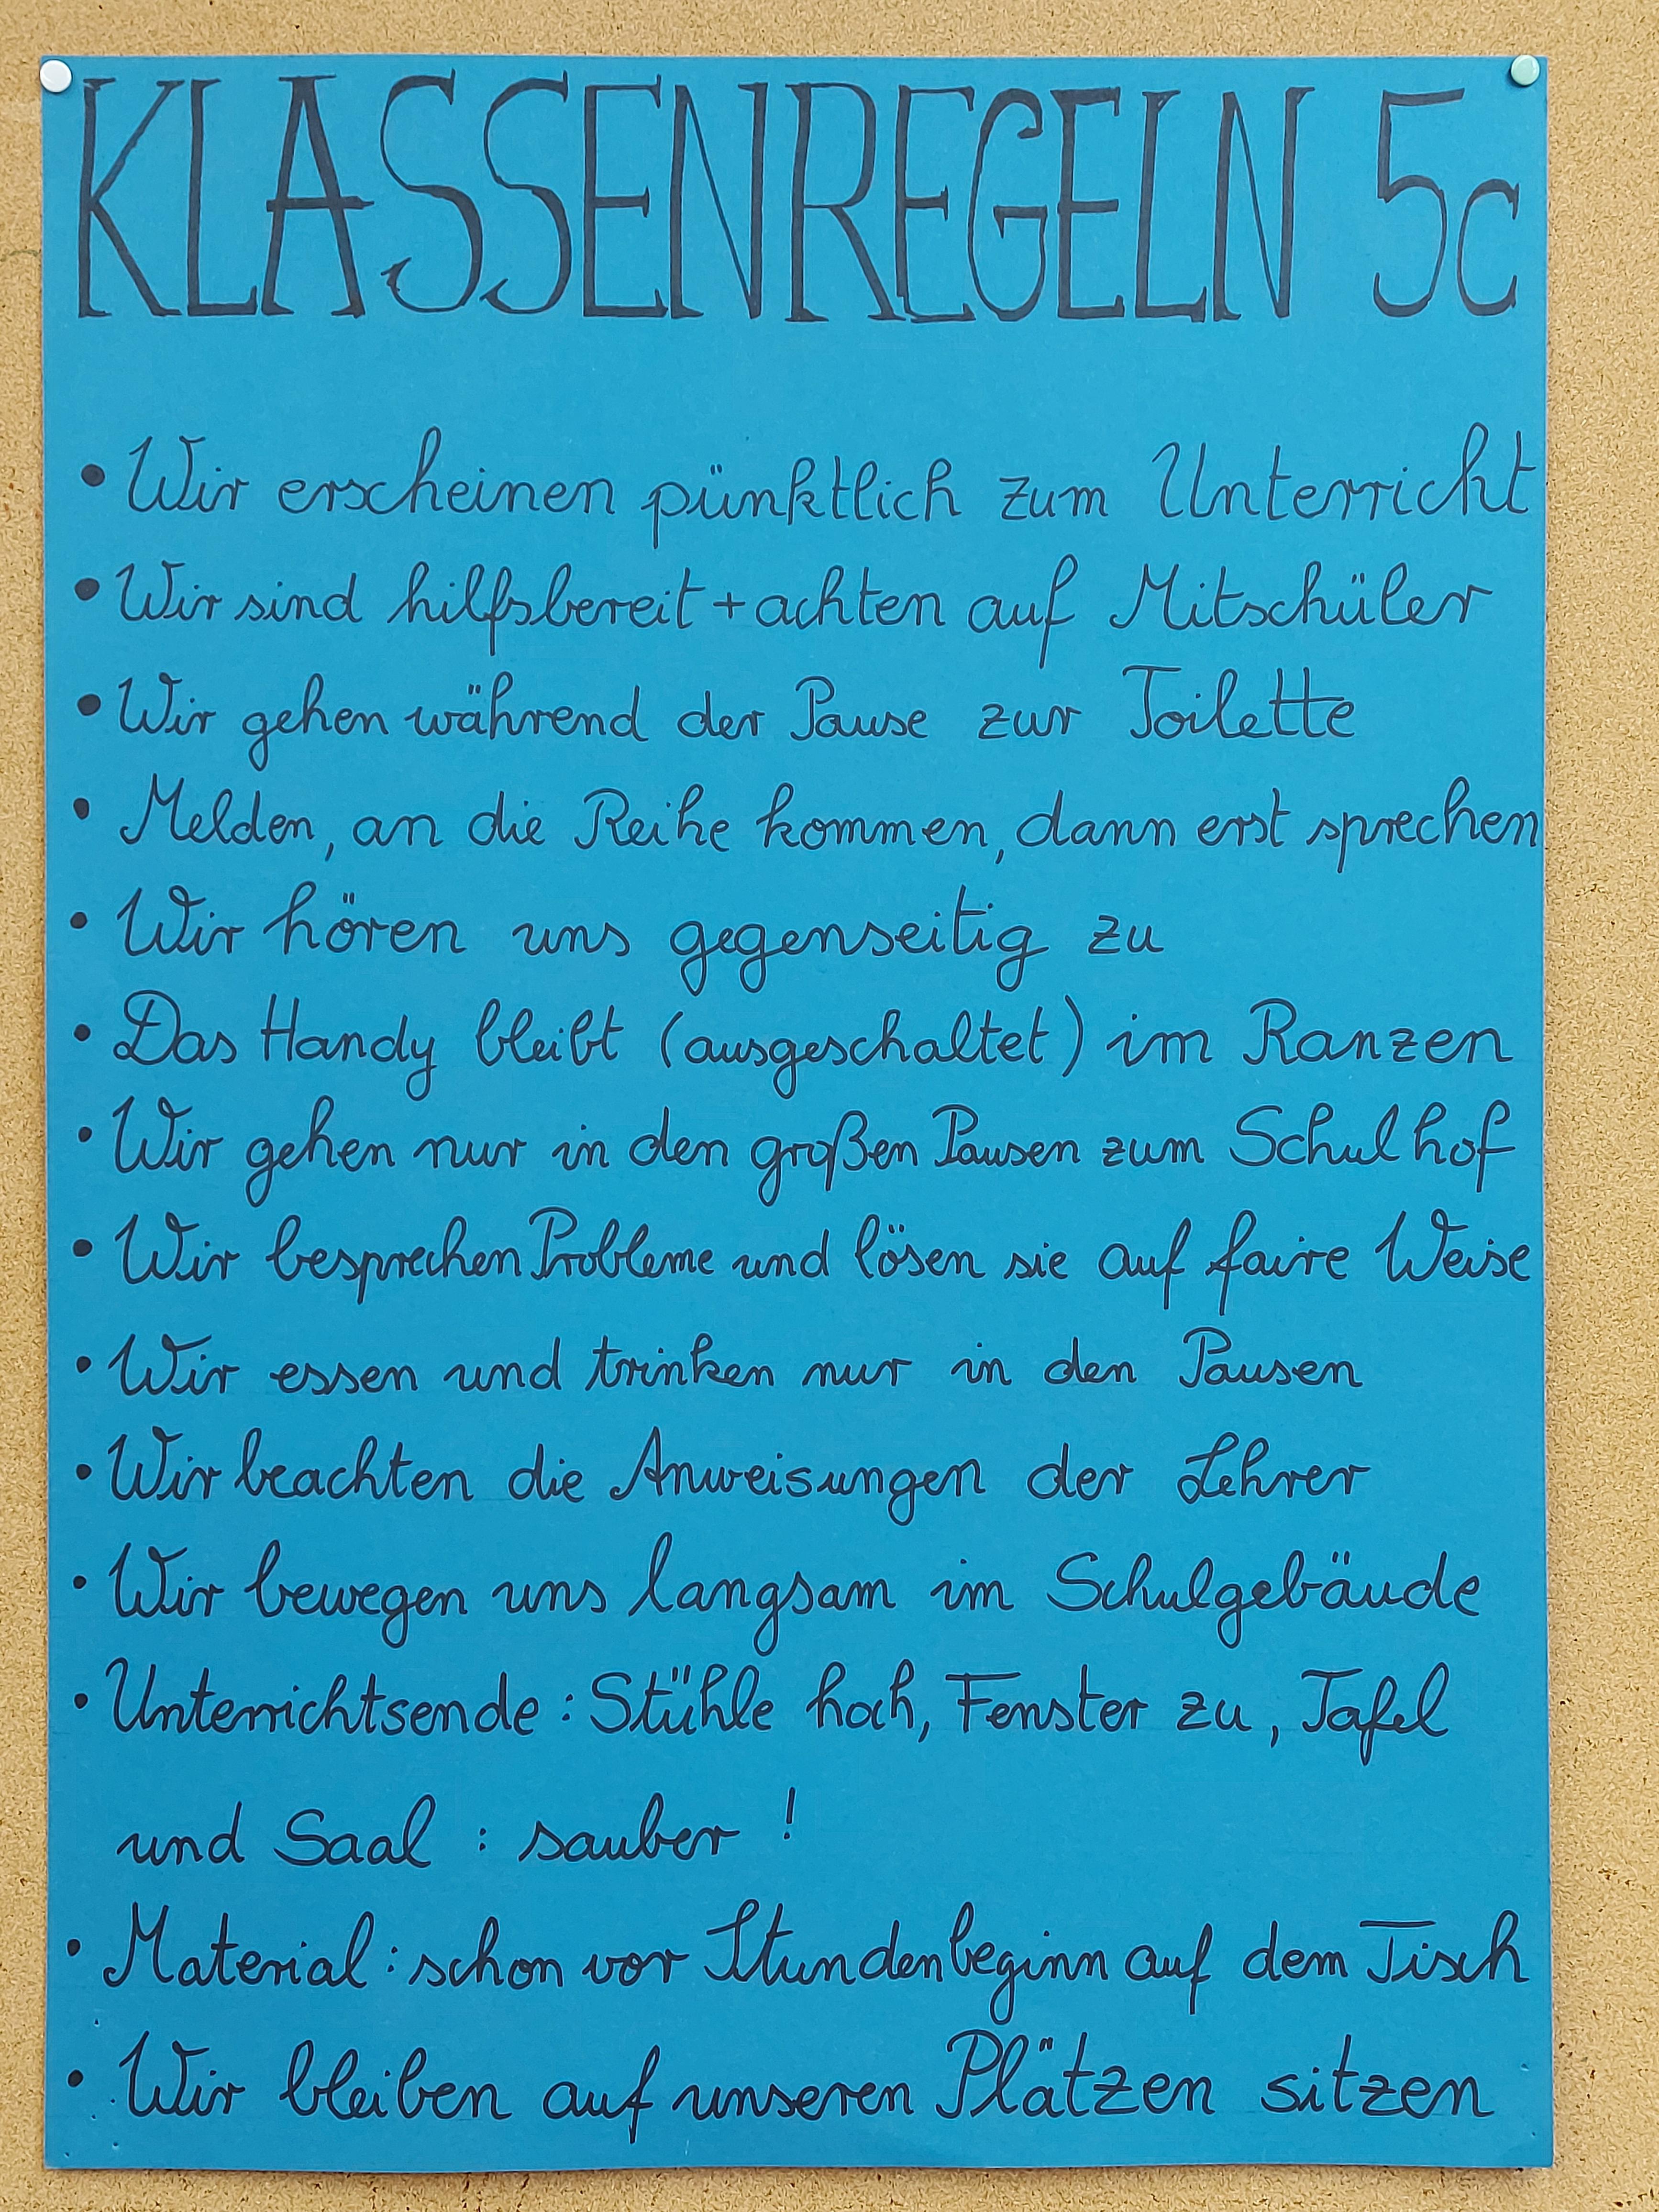 KLASSENREGELN 5c
• Wir erscheinen pünktlich zum Unterricht
• Wir sind hilfsbereit + achten auf Mitschüler
• Wir gehen während der Pause zur Toilette
• Melden, an die Reihe kommen, dann erst sprechen
• Wir hören uns gegenseitig zu
• Das Handy bleibt (ausgeschaltet) im Ranzen
• Wir gehen nur in den großen Pausen zum Schulhof
• Wir besprechen Probleme und lösen sie auf faire Weise
• Wir essen und trinken nur in den Pausen
• Wir beachten die Anweisungen der Lehrer
• Wir bewegen uns langsam im Schulgebäude
• Unterrichtsende: Stühle hoch, Fenster zu, Tafel
und Saal : sauber !
• Material: schon vor Stundenbeginn auf dem Tisch
• Wir bleiben auf unseren Plätzen sitzen